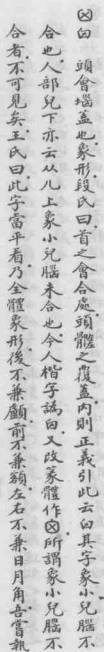 囟 頭會𡿺蓋也象形段氏曰首之會合處頭髓之覆蓋內則正義引此云囟其字象小兒𡿺不
合也人部兒下亦云从儿上象小兒腦未合也今人楷字譌囟又改篆體作所謂象小兒腦不
合者不可見矣王氏曰此字當平看乃全體象形後不兼顱前不兼額左右不兼日月角吾嘗執